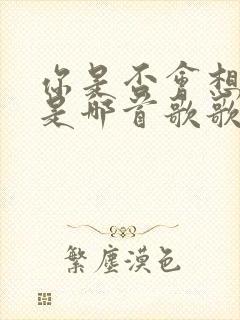 你是否會想
是那首歌歌
繁塵漠色